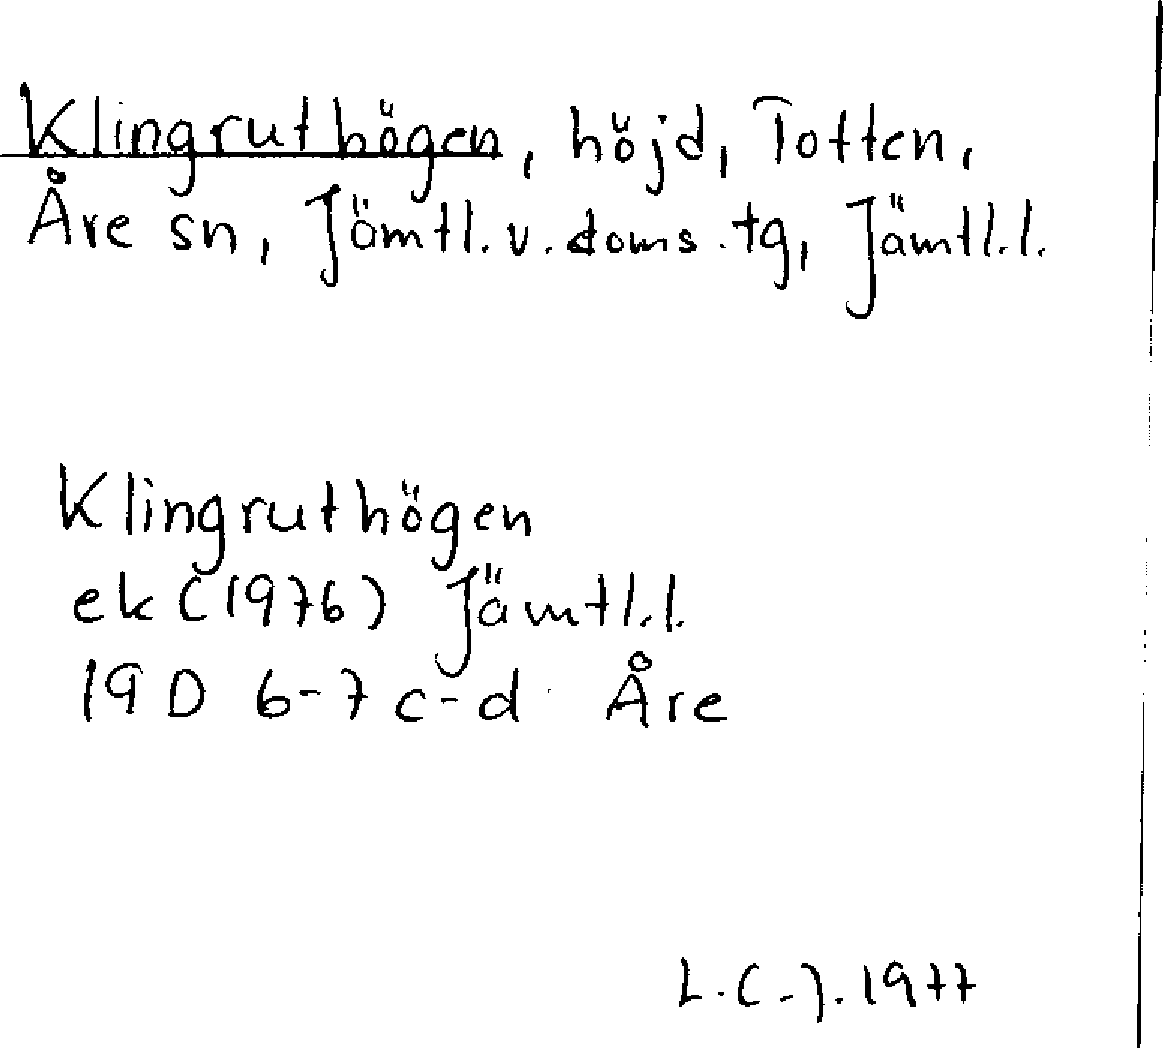 Klingruthögen, höjd, Totten,
Åre sn, Jämtl. v. doms. tg, Jämtl. l.
Klingruthögen
ek (1976) Jämtl. l.
19 D 6-7 c-d Åre
L. C-J. 1977